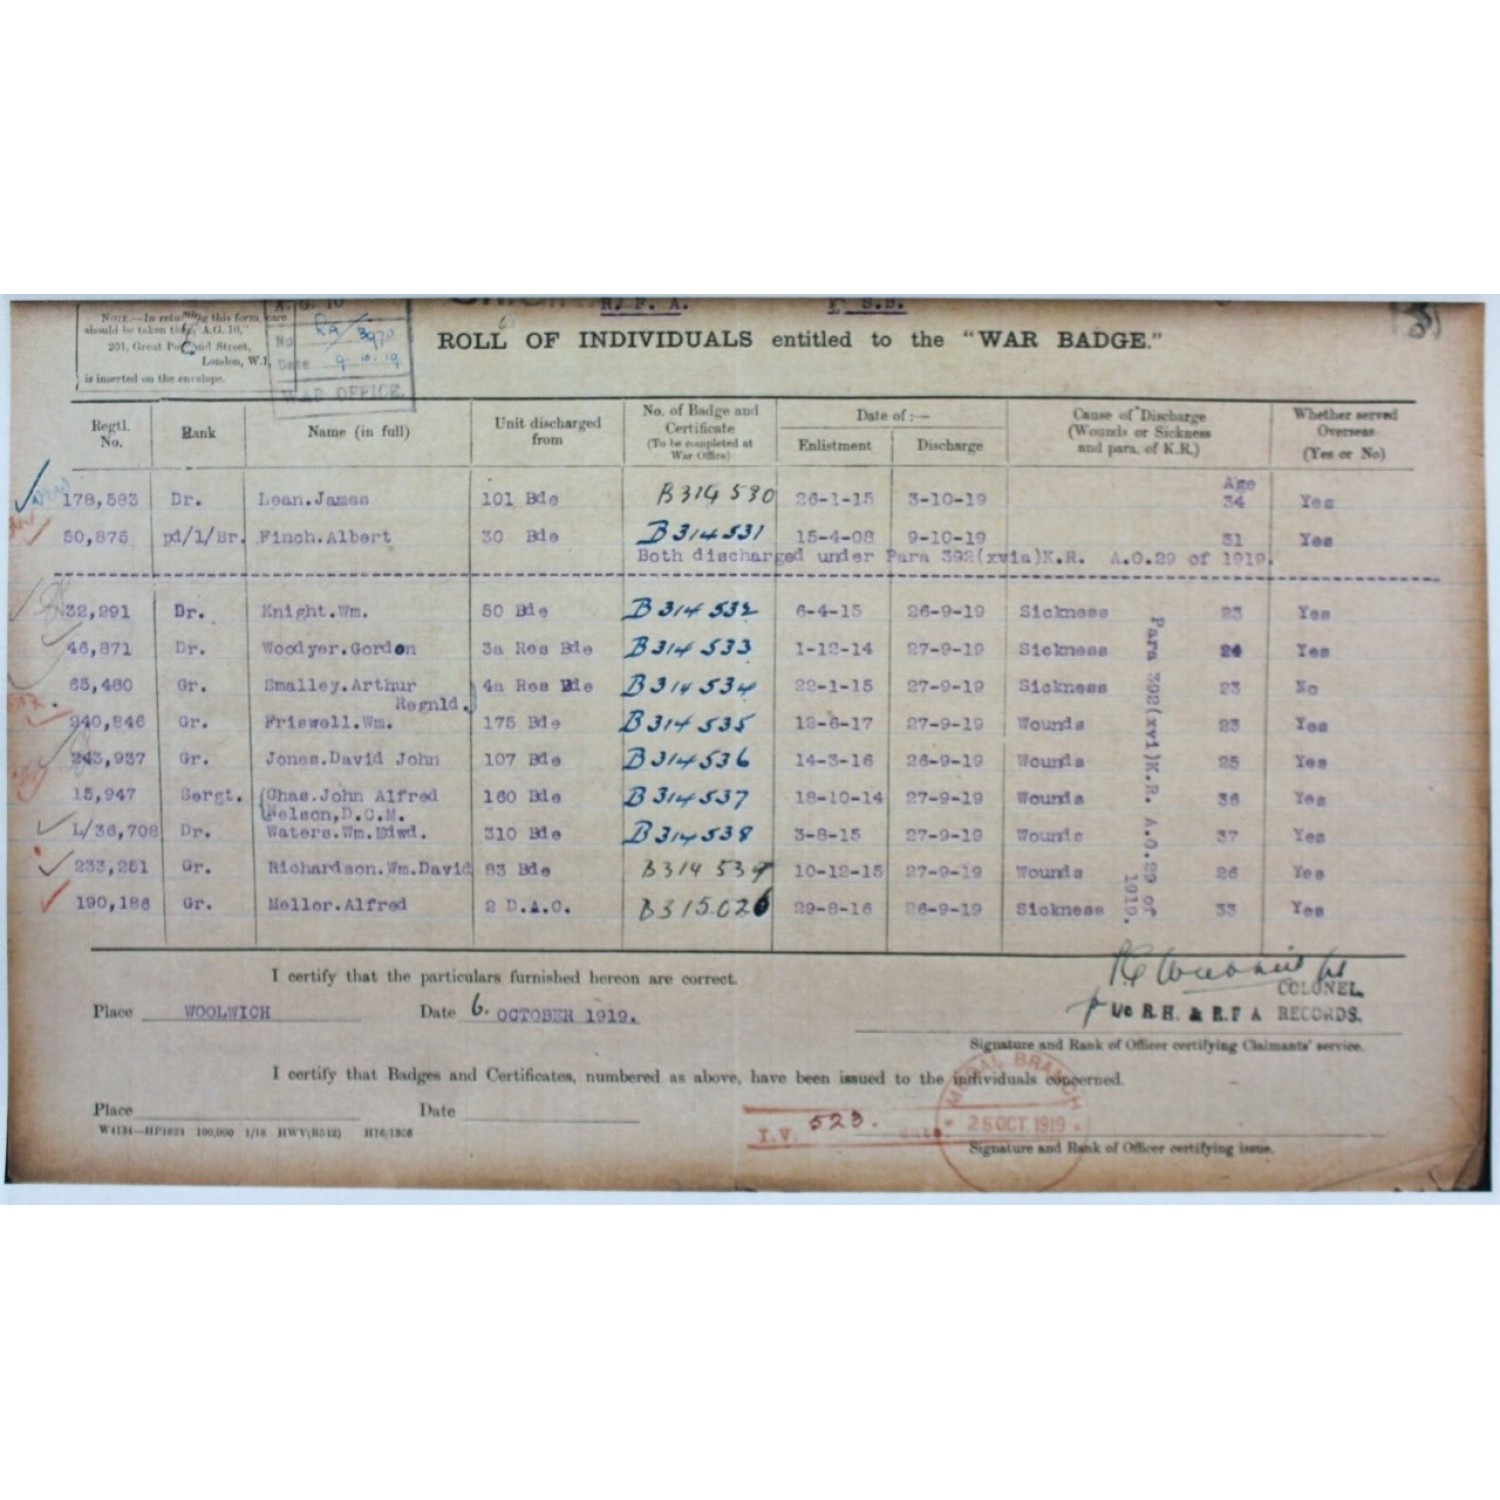 R. F. A.
S.S.
NOTE.—In returning this form care
should be taken that "A.G. 10,"
291, Great Portland Street,
London, W.1,
is inserted on the envelope.
A. G. 10
No 3970
Date 9.10.19
WAR OFFICE
ROLL OF INDIVIDUALS entitled to the "WAR BADGE."
Regtl. No. Rank Name (in full) Unit discharged from No. of Badge and Certificate (To be completed at War Office) Date of :— Enlistment Discharge Cause of Discharge (Wounds or Sickness and para. of K.R.) Whether served Overseas (Yes or No)
Age
178,583 Dr. Lean.James 101 Bde B314 530 26-1-15 3-10-19 34 Yes
50,875 pd/l/Br. Finch.Albert 30 Bde B314531 15-4-08 9-10-19 31 Yes
Both discharged under Para 392(xvia)K.R. A.O.29 of 1919.
32,291 Dr. Knight.Wm. 50 Bde B314532 6-4-15 26-9-19 Sickness 23 Yes
46,871 Dr. Woodyer.Gordon 3a Res Bde B314533 1-12-14 27-9-19 Sickness 24 Yes
65,480 Gr. Smalley.Arthur 4a Res Bde B314534 22-1-15 27-9-19 Sickness 23 No
Regnld.
240,846 Gr. Friswell.Wm. 175 Bde B314535 12-6-17 27-9-19 Wounds 23 Yes
243,937 Gr. Jones.David John 107 Bde B314536 14-3-16 26-9-19 Wounds 25 Yes
15,947 Sergt. (Chas.John Alfred 160 Bde B314537 18-10-14 27-9-19 Wounds 36 Yes
(Nelson,D.C.M.
L/36,708 Dr. Waters.Wm.Edwd. 310 Bde B314538 3-8-15 27-9-19 Wounds 37 Yes
233,251 Gr. Richardson.Wm.David 83 Bde B314 539 10-12-15 27-9-19 Wounds 26 Yes
190,186 Gr. Mellor.Alfred 2 D.A.C. B315026 29-8-16 26-9-19 Sickness 33 Yes
Para 392(xvi)K.R. A.O.29 of
1919.
I certify that the particulars furnished hereon are correct.
COLONEL,
Place WOOLWICH Date 6. OCTOBER 1919.
I/c R.H. & R.F A RECORDS.
Signature and Rank of Officer certifying Claimants' service.
I certify that Badges and Certificates, numbered as above, have been issued to the individuals concerned.
Place Date
W4134—HP1623 100,000 1/18 HWV(R542) H16/1306
I.V. 523.
MEDAL BRANCH
25 OCT. 1919
Signature and Rank of Officer certifying issue.